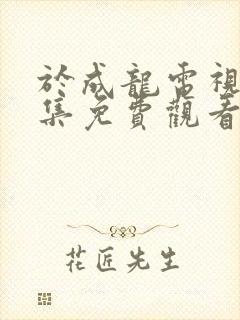 於成龍電視
集免費觀看
花匠先生